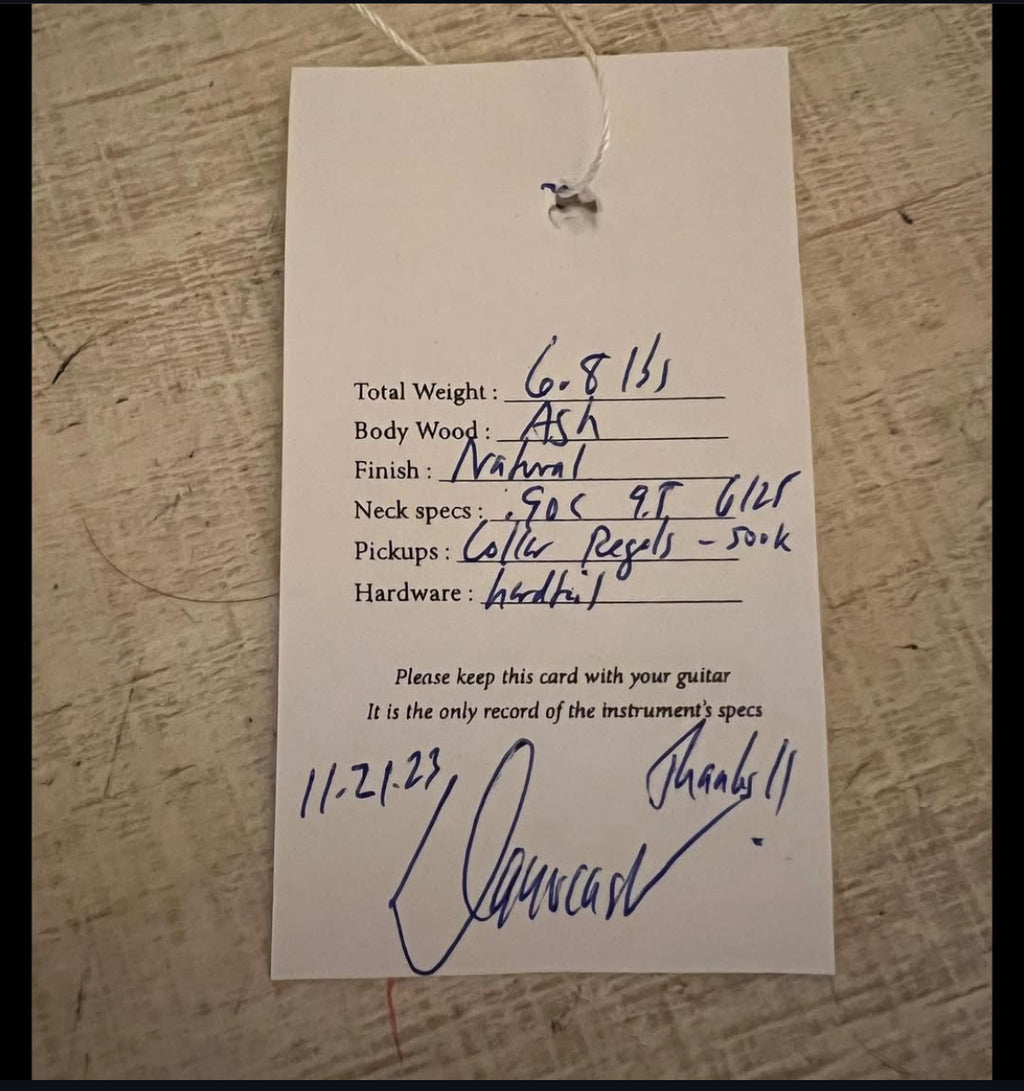 Total Weight : 6.8 lbs
Body Wood : Ash
Finish : Natural
Neck specs : .90 C 9.5 6125
Pickups : Lollar Regals - 500k
Hardware : hardtail
Please keep this card with your guitar
It is the only record of the instrument's specs
11.21.23
Thanks!!